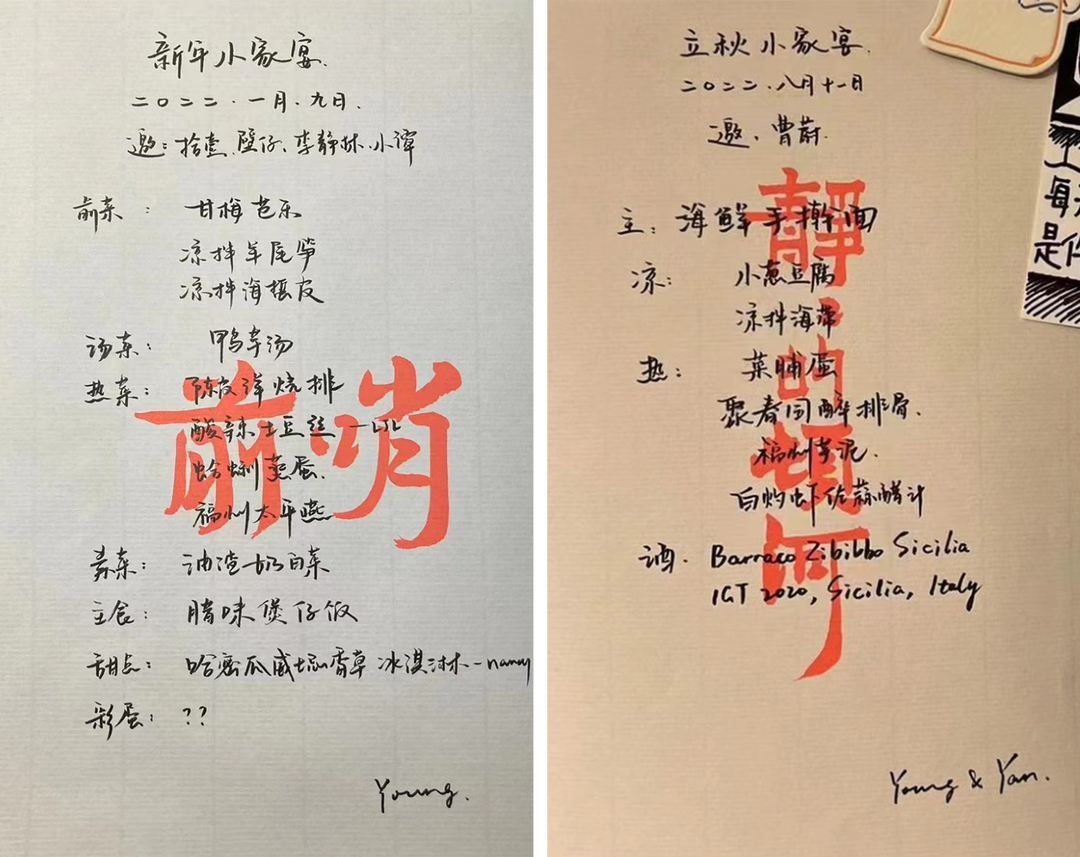 新年小家宴.
二〇二二.一月.九日.
邀: 拾壹、璧仔、李静林、小谭
前菜: 甘梅芭乐
凉拌羊尾笋
凉拌海蜇皮
汤菜: 鸭羊汤
热菜: 陈皮洋烧排
酸辣土豆丝
蛤蜊蒸蛋.
福州太平燕
素菜: 油渣奶白菜
主食: 腊味煲仔饭
甜点: 哈密瓜威士忌香草冰淇淋-nancy
彩蛋: ??
Young.
前哨
立秋小家宴.
二〇二二.八月十一日
邀、曹蔚.
主: 海鲜手擀面
凉: 小葱豆腐
凉拌海带
热: 菜脯蛋
聚春园醉排骨.
福州芋泥.
白灼虾佐蒜醋汁
酒. Barraco Zibibbo Sicilia
IGT 2020, Sicilia, Italy
Young & Yan.
靜靜的頓河
每
是什